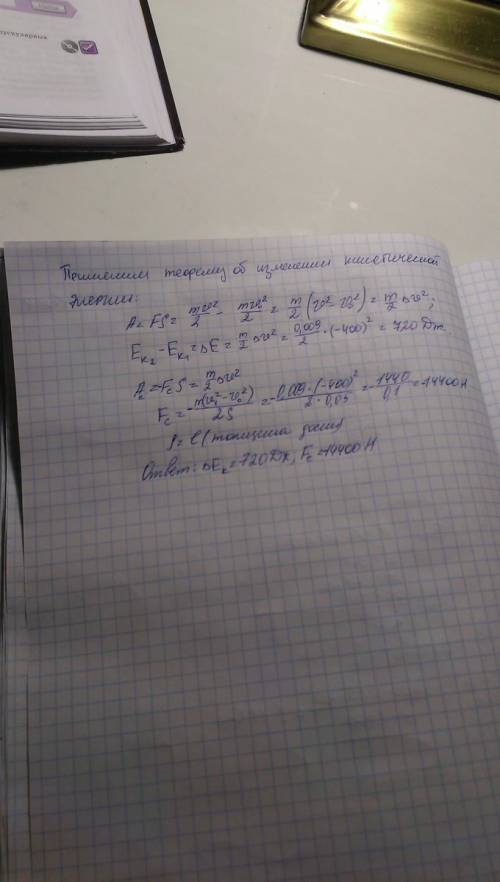 пускулярные
Применим теорему об изменении кинетической
энергии:
A = FS = mv²/2 - mv₀²/2 = m/2 (v² - v₀²) = m/2 Δv²;
Eк₂ - Eк₁ = ΔE = m/2 Δv² = 0,009/2 · (-400)² = 720 Дж.
A = F꜀S = m/2 Δv²
F꜀ = -m(v₁² - v₀²)/2S = -0,009 · (-400)²/2 · 0,05 = -1440/0,1 = -14400 Н
S = l (толщина доски)
Ответ: ΔEк = 720 Дж; F꜀ = 14400 Н